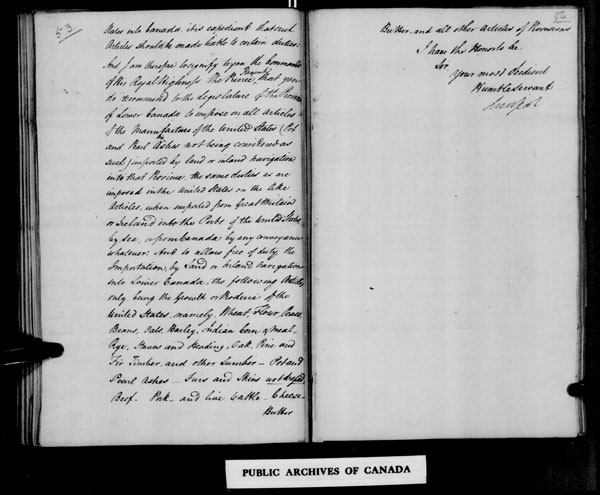 53
States into Canada it is expedient that such
Articles should be made liable to certain duties:
And I am therefore to signify to you the Commands
of His Royal Highness The Prince Regent, that you
do recommend to the Legislature of the Province
of Lower Canada to impose on all Articles
of the Manufacture of the United States (Pot
and Pearl Ashes not being considered as
such) imported by land or inland navigation
into that Province, the same duties as are
imposed in the United States on the like
Articles, when imported from Great Britain
or Ireland into the Ports of the United States,
by sea, or from Canada by any conveyance
whatever: And to allow free of duty, the
Importation, by Land or Inland navigation
into Lower Canada, the following Articles
only, being the Growth or Produce of the
United States, namely, Wheat, Flour, Pease
Beans, Oats, Barley, Indian Corn & meal,
Rye, Staves and Heading, Oak, Pine and
Fir Timber, and other Lumber – Pot and
Pearl Ashes – Furs and Skins not dressed
Beef – Pork – and live Cattle – Cheese
Butter
54
Butter, and all other Articles of Provisions
I have the Honor to be
Sir
Your most Obedient
Humble Servant
PUBLIC ARCHIVES OF CANADA